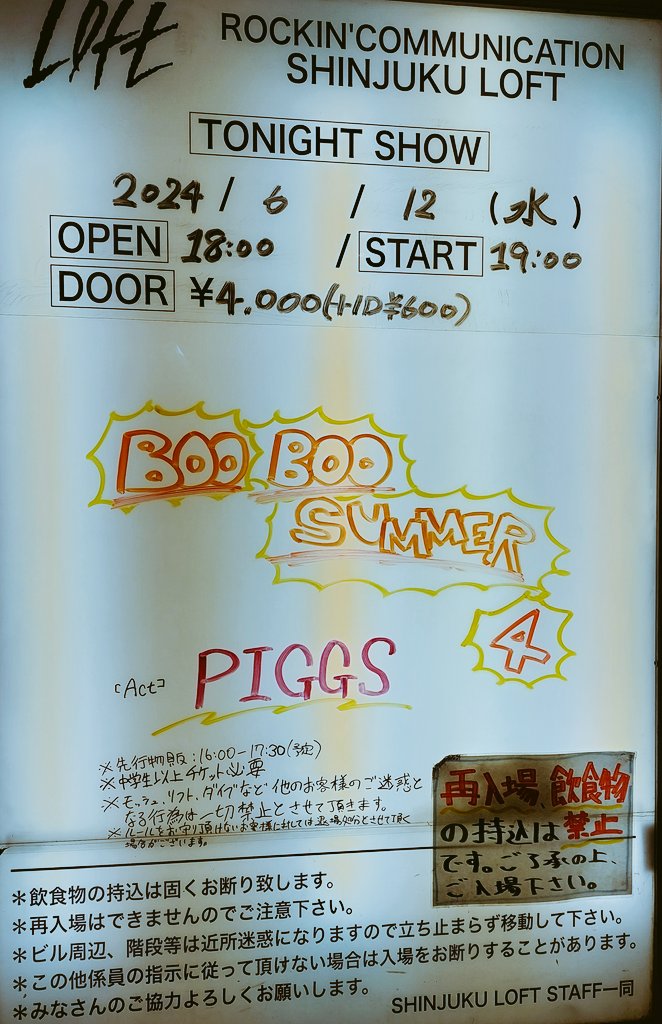 Loft
ROCKIN'COMMUNICATION
SHINJUKU LOFT
TONIGHT SHOW
2024 / 6 / 12 (水)
OPEN 18:00 / START 19:00
DOOR ¥4.000(+1D¥600)
BOO BOO
SUMMER
4
[Act] PIGGS
※先行物販:16:00-17:30(予定)
※中学生以上チケット必要
※モッシュ、リフト、ダイブなど他のお客様のご迷惑と
なる行為は一切禁止とさせて頂きます。
※ルールをお守り頂けないお客様に関しては退場処分とさせて頂く
場合がございます。
再入場、飲食物
の持込は禁止
です。ご了承の上、
ご入場下さい。
*飲食物の持込は固くお断り致します。
*再入場はできませんのでご注意下さい。
*ビル周辺、階段等は近所迷惑になりますので立ち止まらず移動して下さい。
*この他係員の指示に従って頂けない場合は入場をお断りすることがあります。
*みなさんのご協力よろしくお願いします。
SHINJUKU LOFT STAFF一同